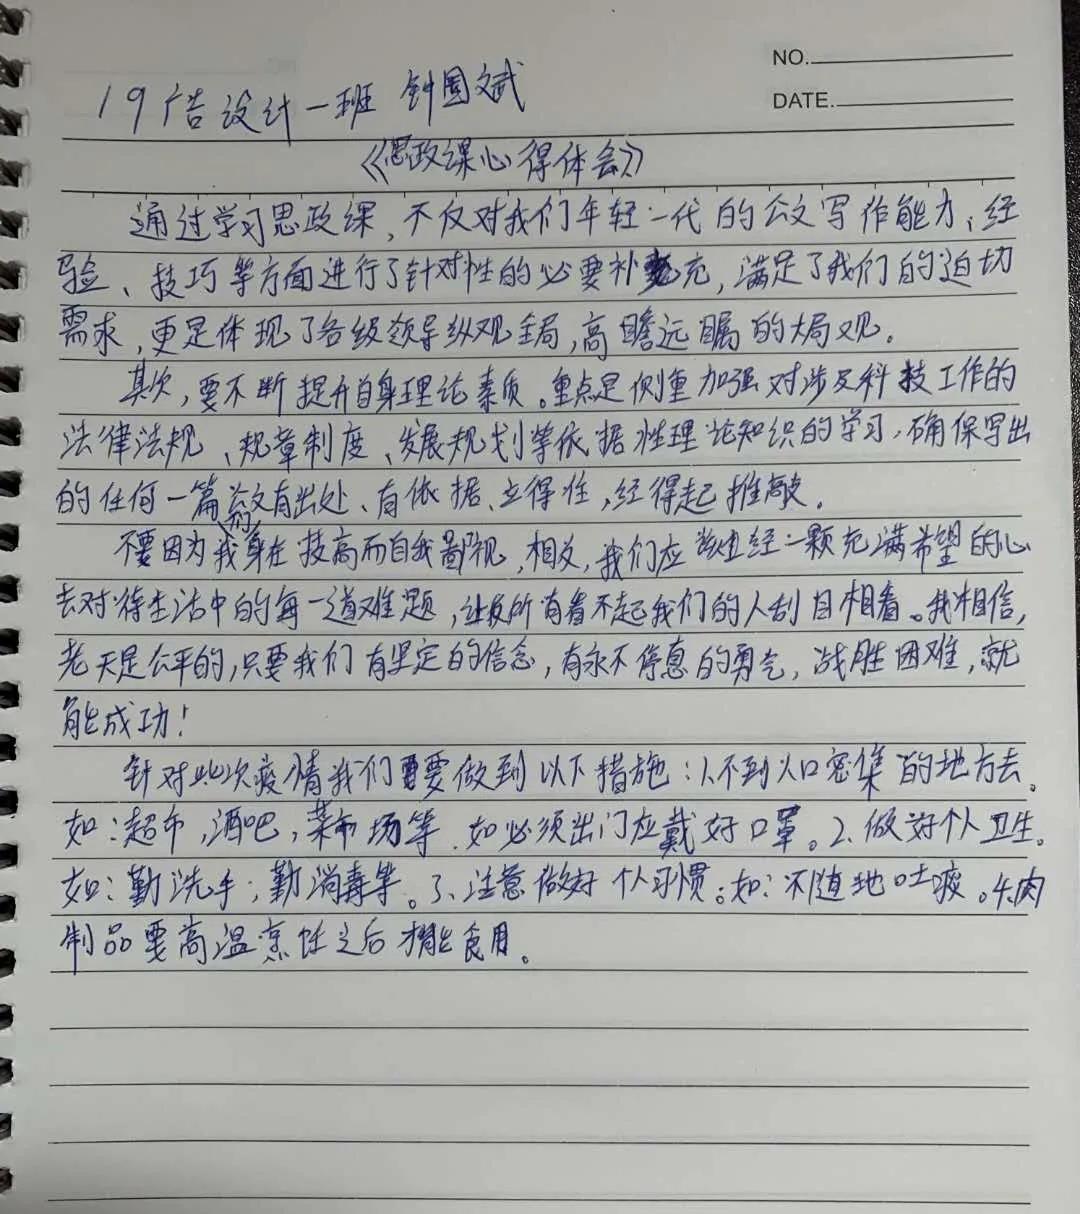 NO.
DATE.
19广告设计一班 钟国斌
《思政课心得体会》
通过学习思政课,不仅对我们年轻一代的公文写作能力、经
验、技巧等方面进行了针对性的必要补充,满足了我们的迫切
需求,更是体现了各级领导纵观全局,高瞻远瞩的大局观。
其次,要不断提升自身理论素质。重点是侧重加强对涉及科技工作的
法律法规、规章制度、发展规划等依据性理论知识的学习,确保写出
的任何一篇公文有出处、有依据、立得住,经得起推敲。
不要因为我们身在技高而自我鄙视,相反,我们应当 一颗充满希望的心
去对待生活中的每一道难题,让所有看不起我们的人刮目相看。我相信,
老天是公平的,只要我们有坚定的信念,有永不停息的勇气,战胜困难,就
能成功!
针对此次疫情我们要做到以下措施:1.不到人口密集的地方去。
如:超市,酒吧,菜市场等.如必须出门应戴好口罩。2.做好个人卫生。
如:勤洗手;勤消毒等。3、注意做好个人习惯。如:不随地吐痰。4.肉
制品要高温烹饪之后才能食用。